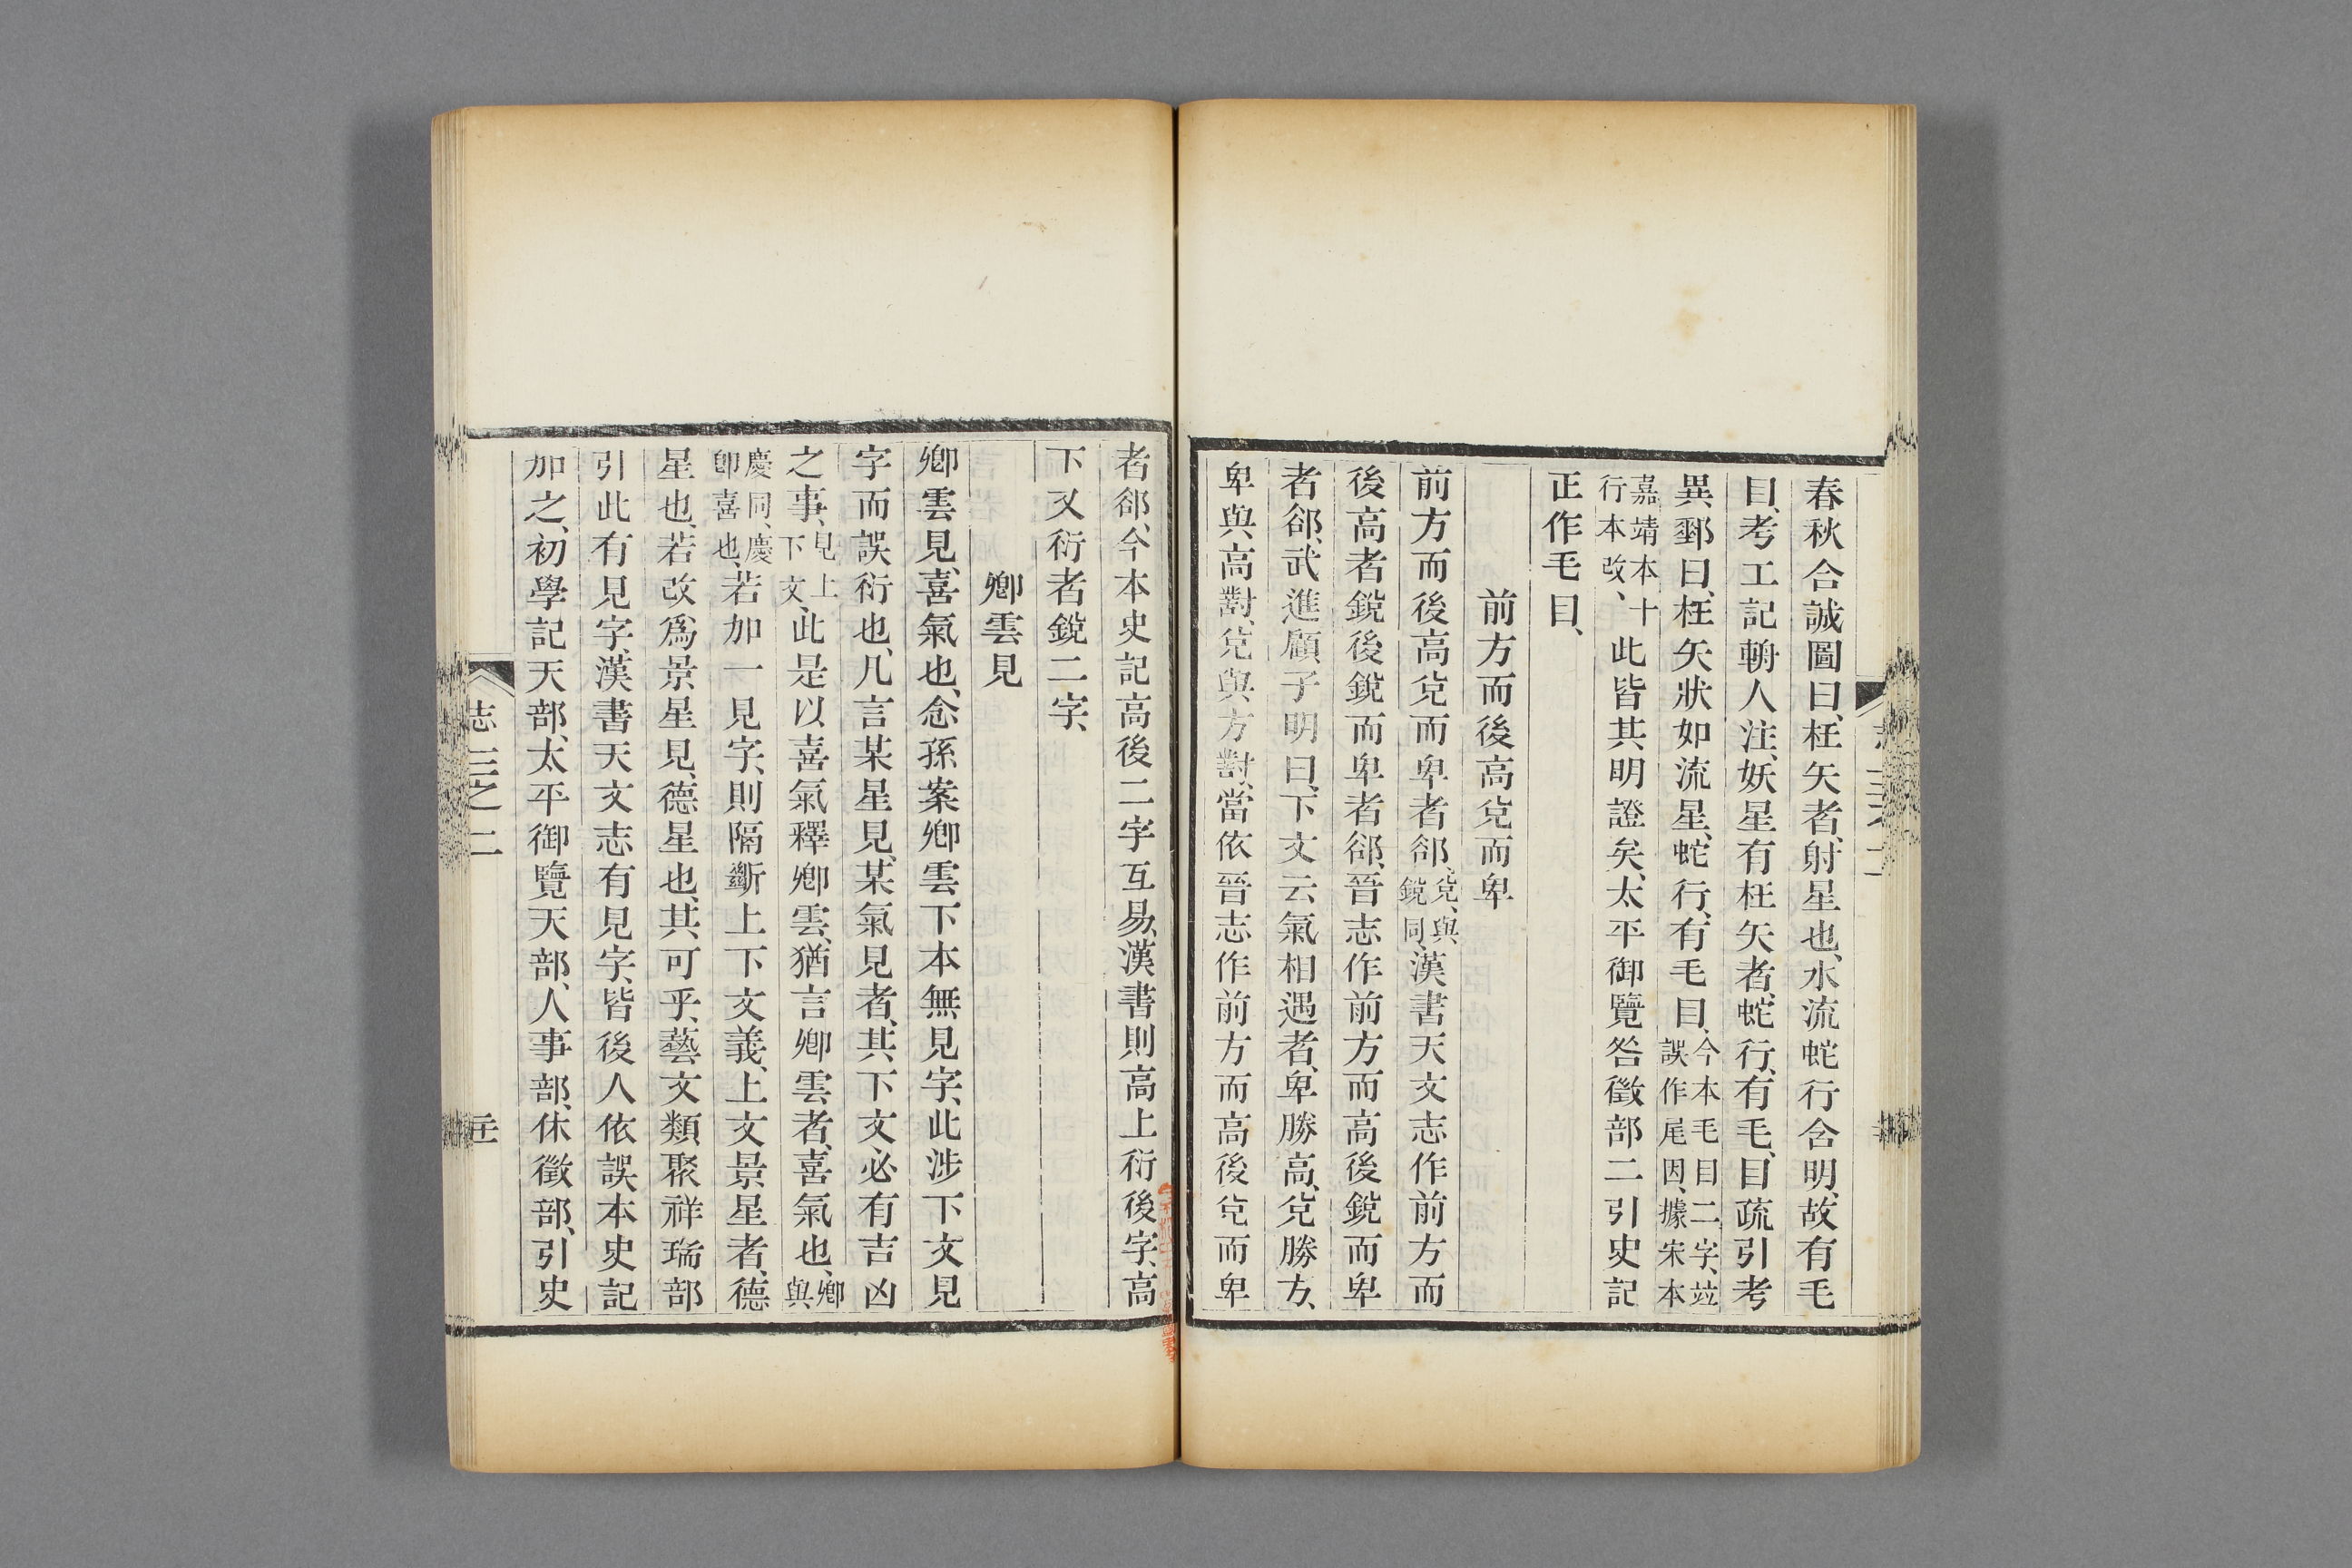 春秋合誠圖曰、枉矢者、射星也、水流蛇行含明、故有毛
目、考工記輈人注、妖星有枉矢者、蛇行、有毛、目疏引考
異郵曰、枉矢狀如流星、蛇行、有毛目、今本毛目二字、竝誤作尾因、據宋本
嘉靖本十行本改、此皆其明證矣、太平御覽咎徵部二引史記
正作毛目、
前方而後高兌而卑
前方而後高兌而卑者郤、兌、與鋭同、漢書天文志作前方而
後高者鋭後鋭而卑者郤、晉志作前方而高後鋭而卑
者郤、武進顧子明曰、下文云氣相遇者、卑勝高、兌勝方、
卑與高對、兌與方對、當依晉志作前方而高後兌而卑
者郤、今本史記高後二字互易、漢書則高上衍後字、高
下又衍者鋭二字、
卿雲見
卿雲見、喜氣也、念孫案卿雲下本無見字、此涉下文見
字而誤衍也、凡言某星見、某氣見者、其下文必有吉凶
之事、見上下文、此是以喜氣釋卿雲、猶言卿雲者、喜氣也、卿與
慶同、慶卽喜也、若加一見字、則隔斷上下文義、上文景星者、德
星也、若改爲景星見、德星也、其可乎、藝文類聚祥瑞部
引此有見字、漢書天文志有見字、皆後人依誤本史記
加之、初學記天部、太平御覽天部、人事部、休徵部、引史
志三之二